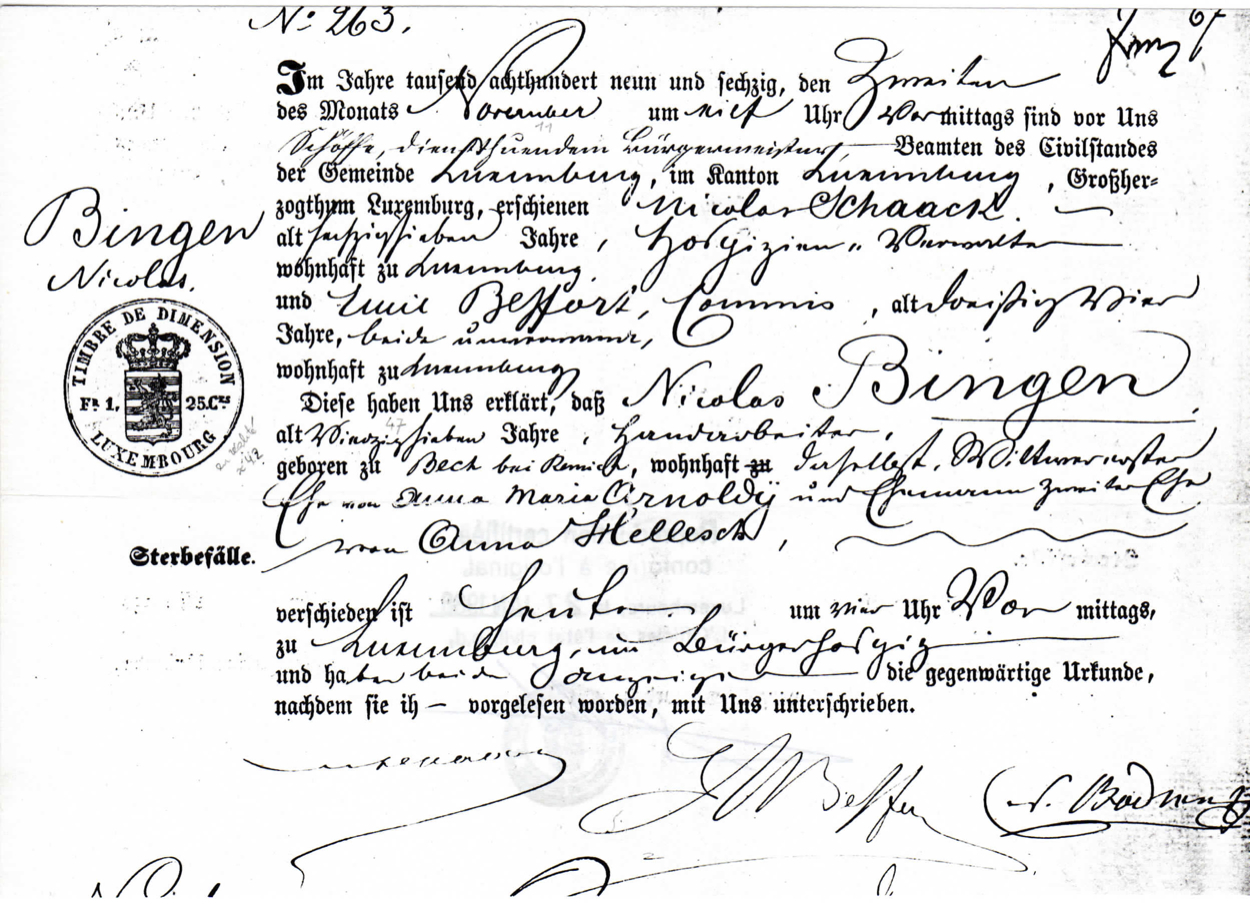 No 263.
Im Jahre tausend achthundert neun und sechzig, den Zweiten
des Monats November um elf Uhr Vormittags sind vor Uns
11
Schöffe, diensthuendem Bürgermeister, Beamten des Civilstandes
der Gemeinde Luxemburg, im Kanton Luxemburg, Großher=
zogthum Luxemburg, erschienen Nicolas Schaack.
alt sechzigsieben Jahre, Hospizien-Verwalter
wohnhaft zu Luxemburg.
und Emil Beffort, Commis, alt dreißig Vier
Jahre, beide unverwandt,
wohnhaft zu Luxemburg
Diese haben Uns erklärt, daß Nicolas Bingen
47
alt Vierzigsieben Jahre, Handarbeiter,
geboren zu Bech bei Remich, wohnhaft zu daselbst, Wittwer erster
Ehe von Anna Maria Arnoldÿ und Ehemann zweiter Ehe
von Anna Hellesch,
verschieden ist heute um vier Uhr Vormittags,
zu Luxemburg, im Bürgerhospiz
und haben beide Anzeiger die gegenwärtige Urkunde,
nachdem sie ih– vorgelesen worden, mit Uns unterschrieben.
Bingen
Nicolas.
TIMBRE DE DIMENSION
Fr 1, 25.Ces
LUXEMBOURG
Sterbefälle.